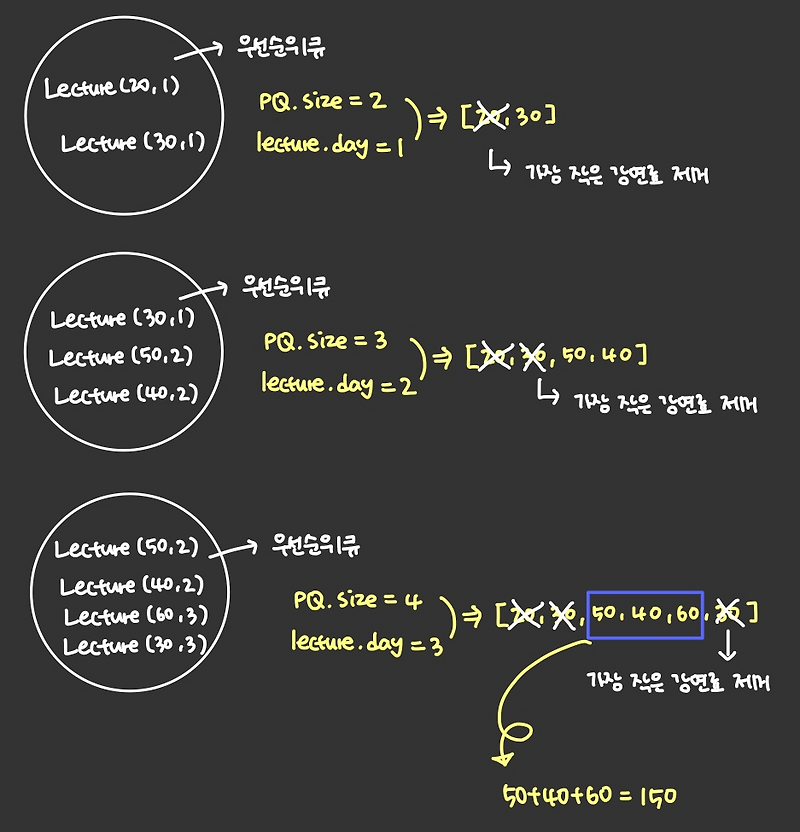 우선순위큐
Lecture(20,1)
Lecture (30,1)
PQ.size = 2
lecture.day = 1
⇒ [20, 30]
가장 작은 강연료 제거
우선순위큐
Lecture (30,1)
Lecture (50,2)
Lecture (40,2)
PQ.size = 3
lecture.day = 2
⇒ [20, 30, 50, 40]
가장 작은 강연료 제거
우선순위큐
Lecture (50,2)
Lecture (40,2)
Lecture (60,3)
Lecture (30,3)
PQ.size = 4
lecture.day = 3
⇒ [20, 30, 50, 40, 60, 30]
가장 작은 강연료 제거
50+40+60 = 150